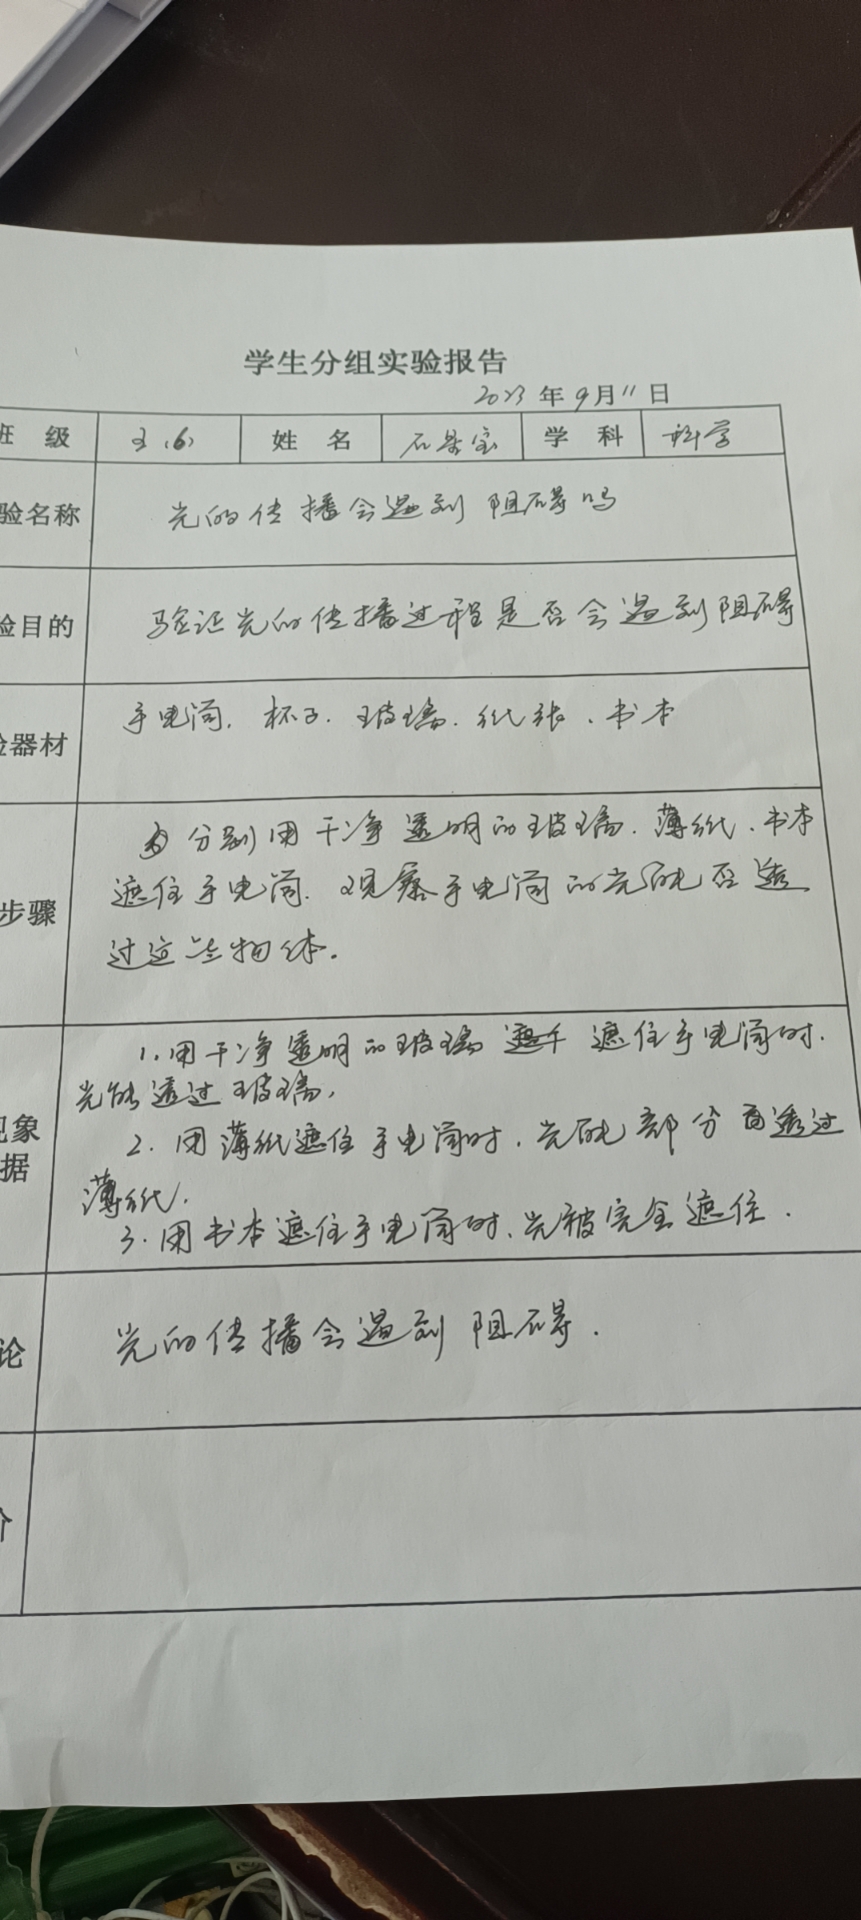 学生分组实验报告
2023 年 9 月 11 日
班 级 (6) 姓 名 石景宝 学 科 科学
验名称 光的传播会遇到阻碍吗
验目的 验证光的传播过程是否会遇到阻碍
验器材 手电筒、杯子、玻璃、纸张、书本
步骤 分别用干净透明的玻璃、薄纸、书本
遮住手电筒、观察手电筒的光能否透
过这些物体。
1. 用干净透明的玻璃 遮住手电筒时、
光能透过玻璃。
现象 2. 用薄纸遮住手电筒时、光能部分透过
据 薄纸。
3. 用书本遮住手电筒时、光被完全遮住。
论 光的传播会遇到阻碍。
价